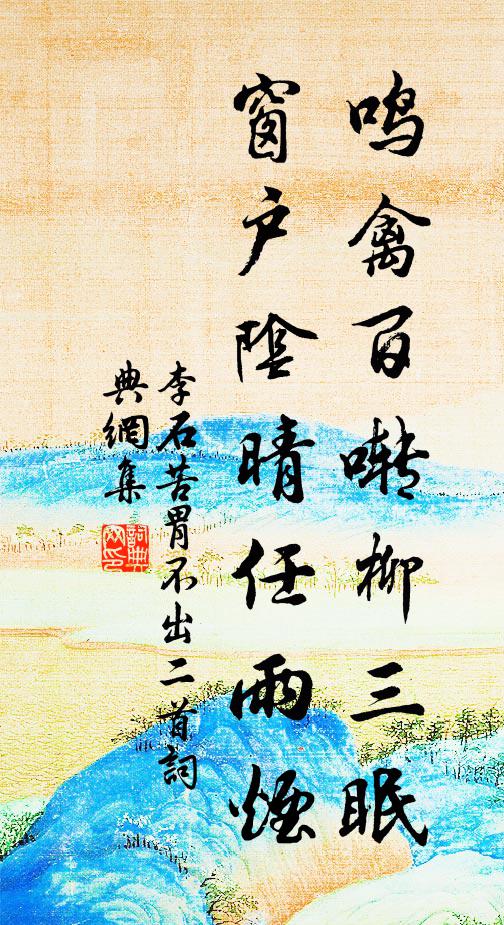 鸣禽百啭柳三眠
窗户陰晴任雨煙
李石苦胃不出二首詞
典網集
詞典